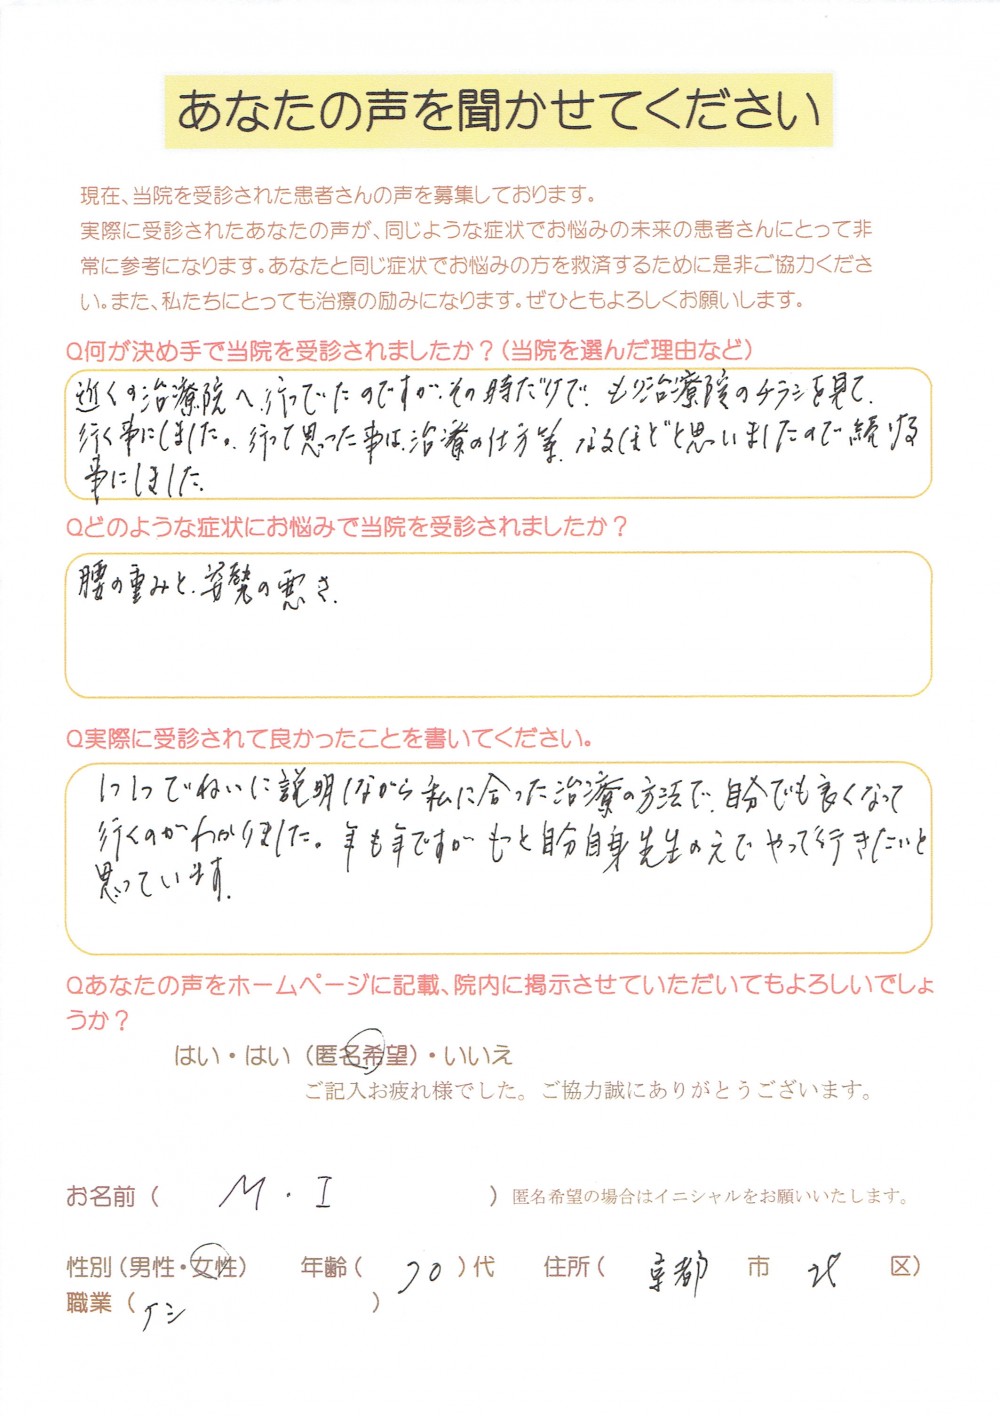 あなたの声を聞かせてください
現在、当院を受診された患者さんの声を募集しております。
実際に受診されたあなたの声が、同じような症状でお悩みの未来の患者さんにとって非
常に参考になります。あなたと同じ症状でお悩みの方を救済するために是非ご協力くださ
い。また、私たちにとっても治療の励みになります。ぜひともよろしくお願いします。
Q何が決め手で当院を受診されましたか？（当院を選んだ理由など）
近くの治療院へ行ってたのですが、その時だけで、もり治療院のチラシを見て、
行く事にしました。行って思った事は、治療の仕方等、なるほどと思いましたので続ける
事にしました。
Qどのような症状にお悩みで当院を受診されましたか？
腰の重みと、姿勢の悪さ。
Q実際に受診されて良かったことを書いてください。
1つ1つていねいに説明しながら私に合った治療の方法で、自分でも良くなって
行くのがわかりました。年も年ですがもっと自分自身先生の元でやって行きたいと
思っています。
Qあなたの声をホームページに記載、院内に掲示させていただいてもよろしいでしょ
うか？
はい・はい（匿名希望）・いいえ
ご記入お疲れ様でした。ご協力誠にありがとうございます。
お名前（ M・I ）匿名希望の場合はイニシャルをお願いいたします。
性別（男性・女性） 年齢（ 70 ）代 住所（ 京都 市 北 区）
職業（ ）